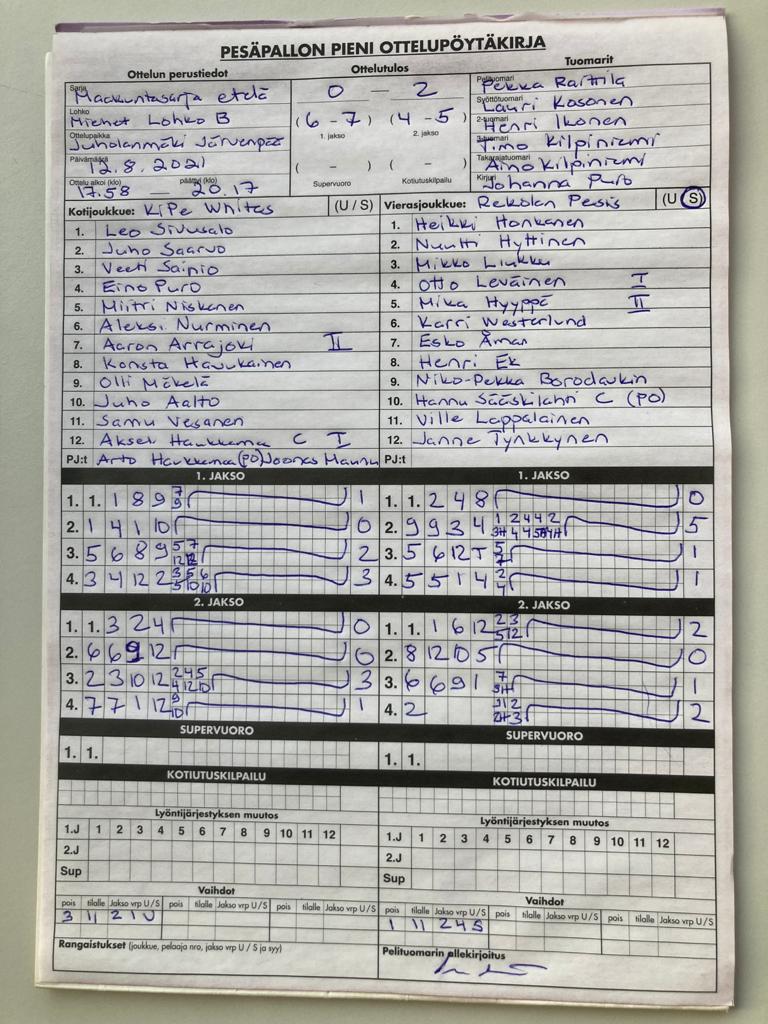 PESÄPALLON PIENI OTTELUPÖYTÄKIRJA
Ottelun perustiedot
Ottelutulos
Tuomarit
Sarja Maakuntasarja etelä
Lohko Miehet Lohko B
Ottelupaikka Juholanmäki Järvenpää
Päivämäärä 12.8.2021
Ottelu alkoi (klo) 17.58 — päättyi (klo) 20.17
0 — 2
(6 - 7) (4 - 5)
1. jakso 2. jakso
( - ) ( - )
Supervuoro Kotiutuskilpailu
Pelituomari Pekka Raitila
Syöttötuomari Lauri Kosonen
2-tuomari Henri Ikonen
3-tuomari Timo Kilpiniemi
Takarajatuomari Aino Kilpiniemi
Kirjuri Johanna Puro
Kotijoukkue: KiPe Whitas (U / S)
1. Leo Sivusalo
2. Juho Saarvo
3. Veeti Sainio
4. Eino Puro
5. Miitri Niskanen
6. Aleksi Nurminen
7. Aaron Arrajoki II
8. Konsta Haukkainen
9. Olli Mäkelä
10. Juho Aalto
11. Samu Vesanen
12. Akseli Haukkamaa C I
PJ:t Arto Haukkamaa (PO) Joonas Mannu
Vierasjoukkue: Rekolan Pesis (U S)
1. Heikki Honkanen
2. Nuutti Hyttinen
3. Mikko Liukku
4. Otto Leväinen I
5. Mika Hyyppä II
6. Karri Westerlund
7. Esko Åman
8. Henri Ek
9. Niko-Pekka Borodavkin
10. Hannu Sääskilahti C (PO)
11. Ville Lappalainen
12. Janne Tynkkynen
PJ:t
1. JAKSO
1. 1. 1 8 9 7 9 1
2. 1 4 1 10 0
3. 5 6 8 9 5 7 12 12 2
4. 3 4 12 2 3 5 6 5 10 10 3
1. JAKSO
1. 1. 2 4 8 0
2. 9 9 3 4 1 2 4 4 2 5
3. 5 6 12 T 5 7 1
4. 5 5 1 4 2 4 1
2. JAKSO
1. 1. 3 2 4 0
2. 6 6 9 12 0
3. 2 3 10 12 2 4 5 4 12 10 3
4. 7 7 1 12 9 10 1
2. JAKSO
1. 1. 1 6 12 2 3 5 12 2
2. 8 12 10 5 0
3. 6 6 9 1 7 1
4. 2 2
SUPERVUORO
1. 1.
SUPERVUORO
1. 1.
KOTIUTUSKILPAILU
KOTIUTUSKILPAILU
Lyöntijärjestyksen muutos
1.J 1 2 3 4 5 6 7 8 9 10 11 12
2.J
Sup
Lyöntijärjestyksen muutos
1.J 1 2 3 4 5 6 7 8 9 10 11 12
2.J
Sup
Vaihdot
pois tilalle Jakso vrp U/S pois tilalle Jakso vrp U/S pois tilalle Jakso vrp U/S
3 11 2 1 U
Vaihdot
pois tilalle Jakso vrp U/S pois tilalle Jakso vrp U/S pois tilalle Jakso vrp U/S
1 11 2 4 S
Rangaistukset (joukkue, pelaaja nro, jakso vrp U / S ja syy)
Pelituomarin allekirjoitus